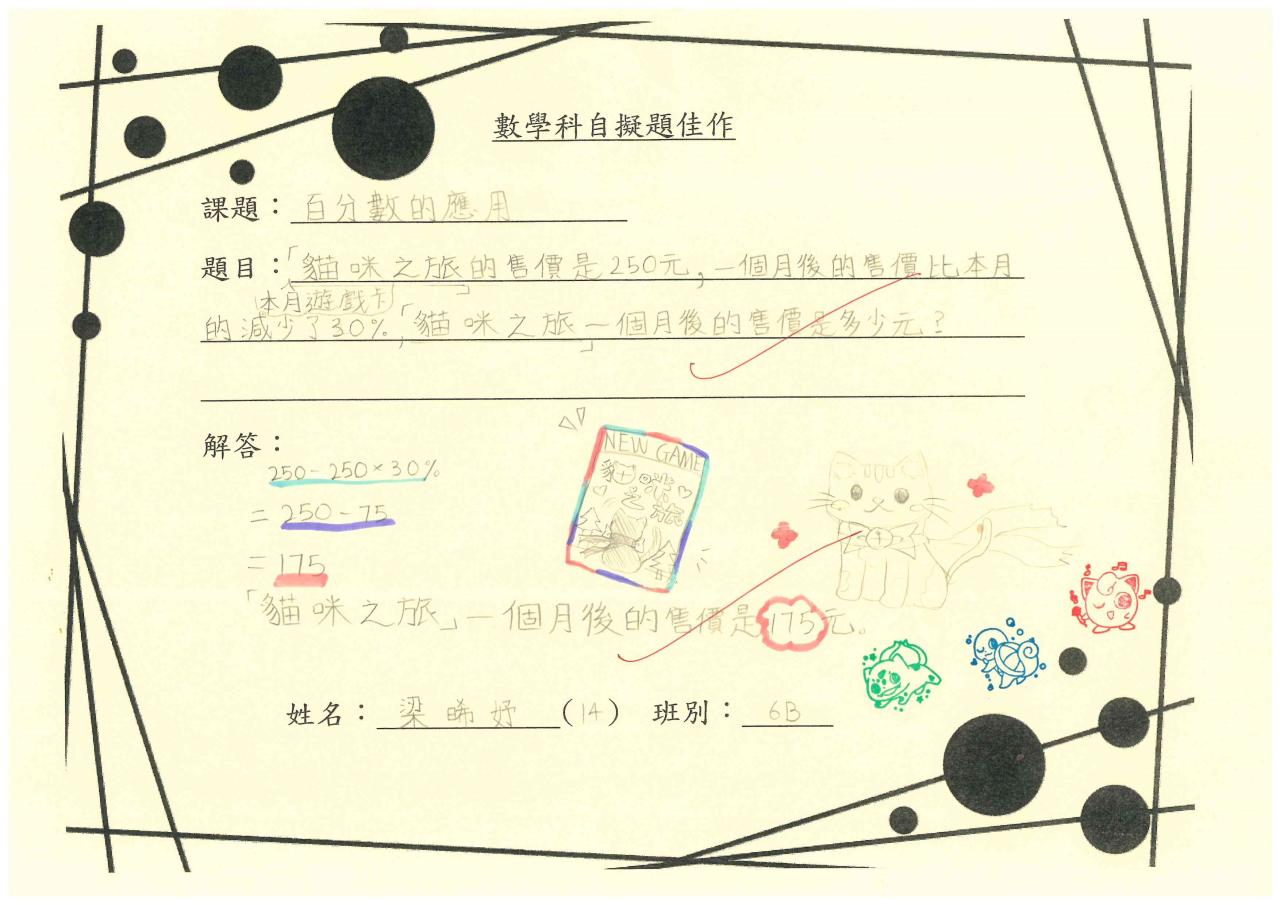 數學科自擬題佳作
課題：百分數的應用
題目：「貓咪之旅的售價是250元，一個月後的售價比本月
本月遊戲卡
的減少了30%，「貓咪之旅」一個月後的售價是多少元？
解答：
250-250×30%
=250-75
=175
NEW GAME
貓咪
之旅
「貓咪之旅」一個月後的售價是175元。
姓名：梁晞妤(14) 班別：6B